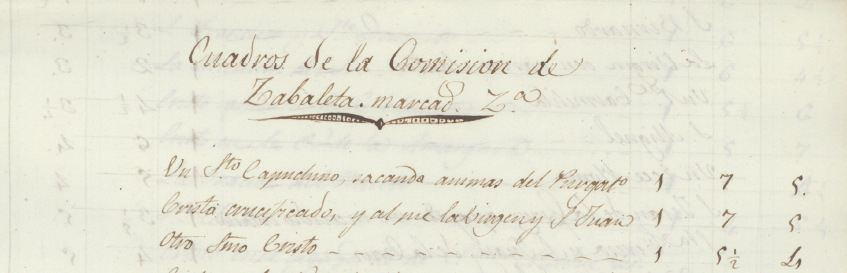 Cuadros de la Comision de
Zabaleta. marcad.^o Z.^a
Un S^to Capuchino, sacando animas del Purgat^o 1 7 5.
Cristo crucificado, y al pie la Virgen y S. Juan 1 7 5
Otro Smo Cristo - - - - - - - - - 1 5½ 4